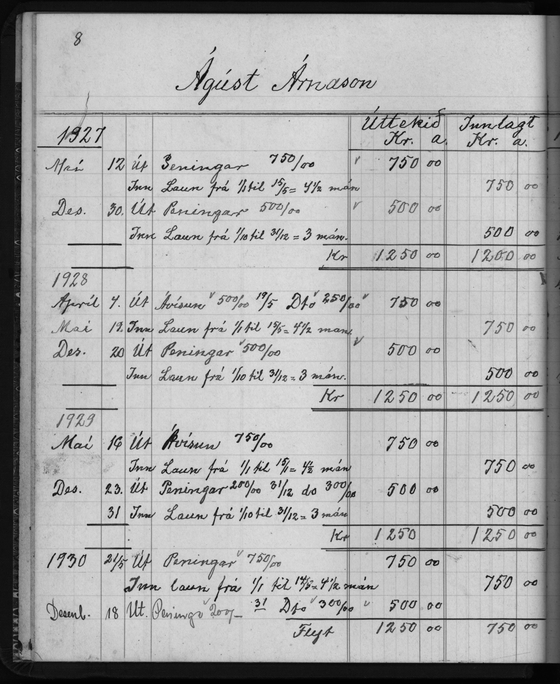 8
Ágúst Árnason
Úttekið Innlagt
1927 Kr. a. Kr. a.
Maí 12 Út Peningar 750/00 750 00
Inn Laun frá 1/1 til 15/5 = 4 1/2 mán 750 00
Des. 30. Út Peningar 500/00 500 00
Inn Laun frá 1/10 til 31/12 = 3 mán. 500 00
Kr 1250 00 1200 00
1928
Apríl 7. Út Ávísun 500/00 19/5 Dto 250/00 750 00
Maí 19. Inn Laun frá 1/1 til 15/5 = 4 1/2 mán. 750 00
Des. 20 Út Peningar 500/00 500 00
Inn Laun frá 1/10 til 31/12 = 3 mán. 500 00
Kr 1250 00 1250 00
1929
Maí 16 Út Ávísun 750/00 750 00
Inn Laun frá 1/1 til 15/1 = 4 1/2 mán 750 00
Des. 23. Út Peningar 200/00 31/12 do 300/00 500 00
31 Inn Laun frá 1/10 til 31/12 = 3 mán 500 00
Kr 1250 1250 00
1930 21/5 Út Peningar 750/00 750 00
Inn laun frá 1/1 til 14/5 = 4 1/2 mán 750 00
Desemb. 18 Út. Peninga 200/- 31 Dto 300/00 500 00
Flyt 1250 00 750 00